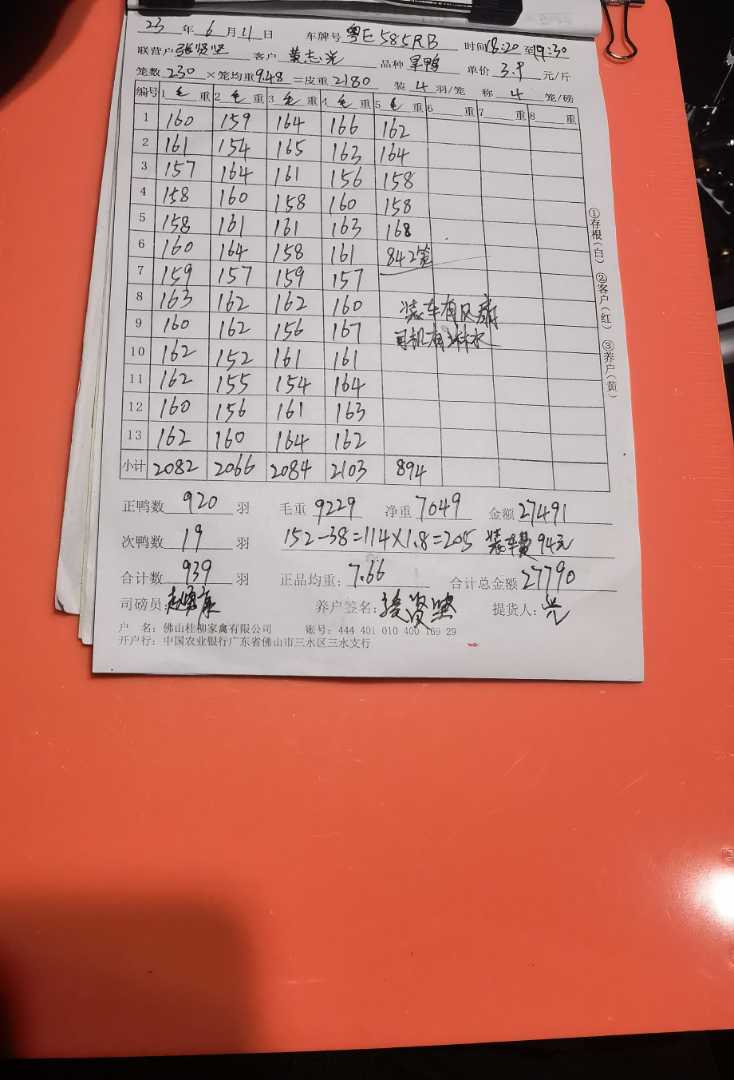 23 年 6 月 11 日 车牌号 粤E585RB 时间 18:20 至 19:30
联营户 张贤坚 客户 黄志兴 品种 旱鸭 单价 3.9 元/斤
笼数 230 × 笼均重 9.48 = 皮重 2180 装 4 羽/笼 称 4 笼/磅
编号 1 毛 重 2 毛 重 3 毛 重 4 毛 重 5 毛 重 6 重 7 重 8 重
1 160 159 164 166 162
2 161 154 165 163 164
3 157 164 161 156 158
4 158 160 158 160 158
5 158 161 161 163 168
6 160 164 158 161 84 2笼
7 159 157 159 157
8 163 162 162 160
装车有风扇
9 160 162 156 167
司机有淋水
10 162 152 161 161
11 162 155 154 164
12 160 156 161 163
13 162 160 164 162
小计 2082 2066 2084 2103 894
①存根(白) ②客户(红) ③养户(黄)
正鸭数 920 羽 毛重 9229 净重 7049 金额 27491
次鸭数 19 羽 152-38=114×1.8=205 装车费 94元
合计数 939 羽 正品均重: 7.66 合计总金额 27790
司磅员: 养户签名: 张贤坚 提货人: 兴
户 名: 佛山桂柳家禽有限公司 账号: 444 401 010 400 169 29
开户行: 中国农业银行广东省佛山市三水区三水支行